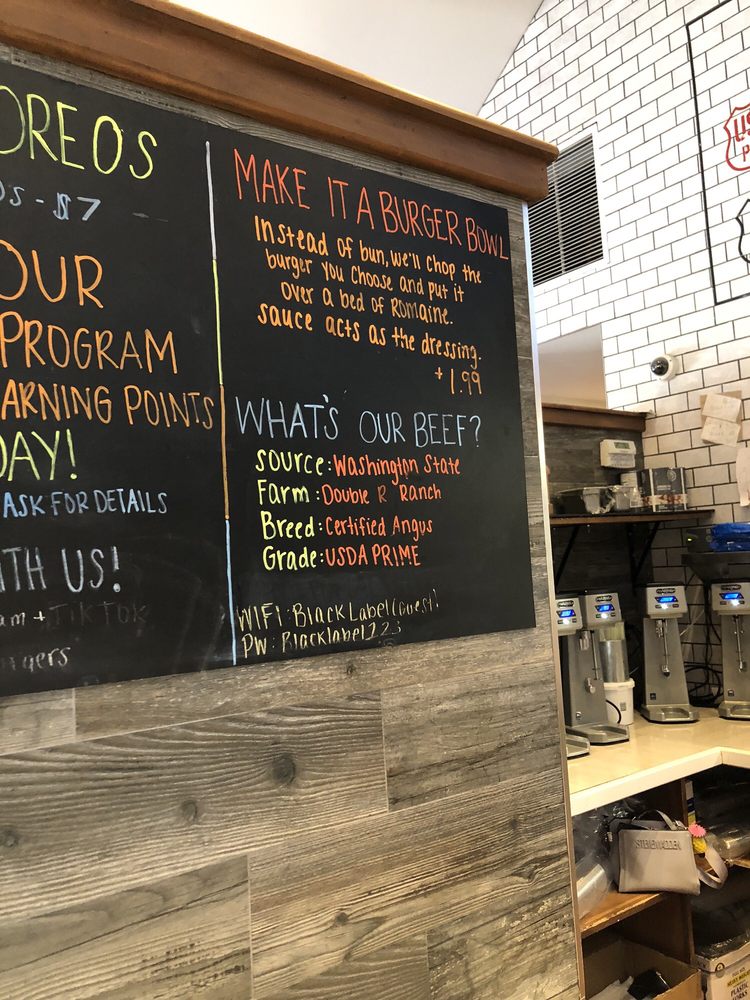 OREOS
- $7
OUR
PROGRAM
ARNING POINTS
DAY!
ASK FOR DETAILS
ITH US!
am + TIKTOK
MAKE IT A BURGER BOWL
Instead of bun, we'll chop the
burger you choose and put it
over a bed of Romaine.
sauce acts as the dressing.
+ 1.99
WHAT'S OUR BEEF?
source: Washington State
Farm: Double R Ranch
Breed: Certified Angus
Grade: USDA PRIME
WIFI: BlackLabel(Guest)
PW: Blacklabel223
US
P
STEVE MADDEN